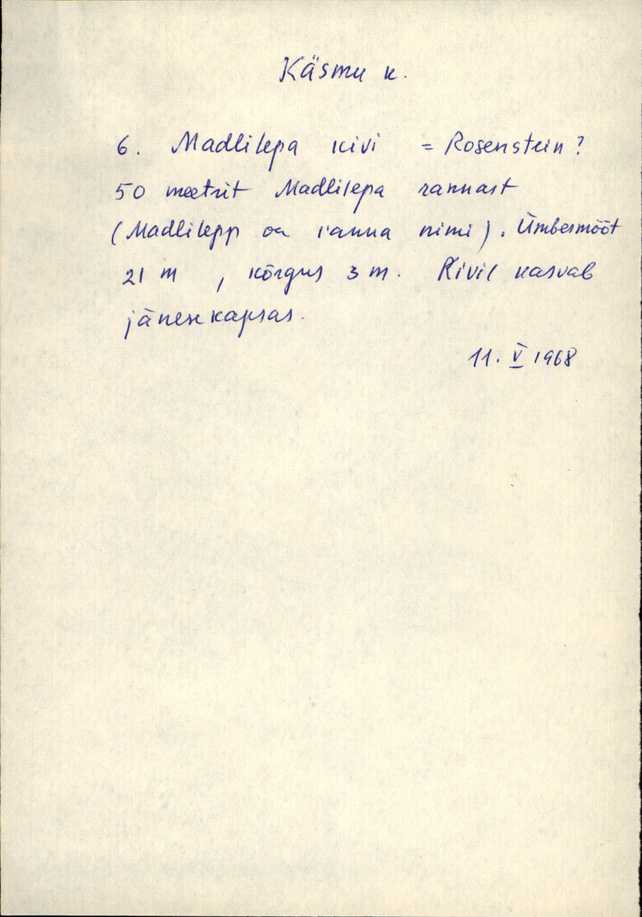 Käsmu k.
6. Madlilepa kivi = Rosenstein?
50 meetrit Madlilepa rannast
(Madlilepp on ranna nimi). Ümbermõõt
21 m, kõrgus 3 m. Kivil kasvab
jänesekapsas.
11. V 1968